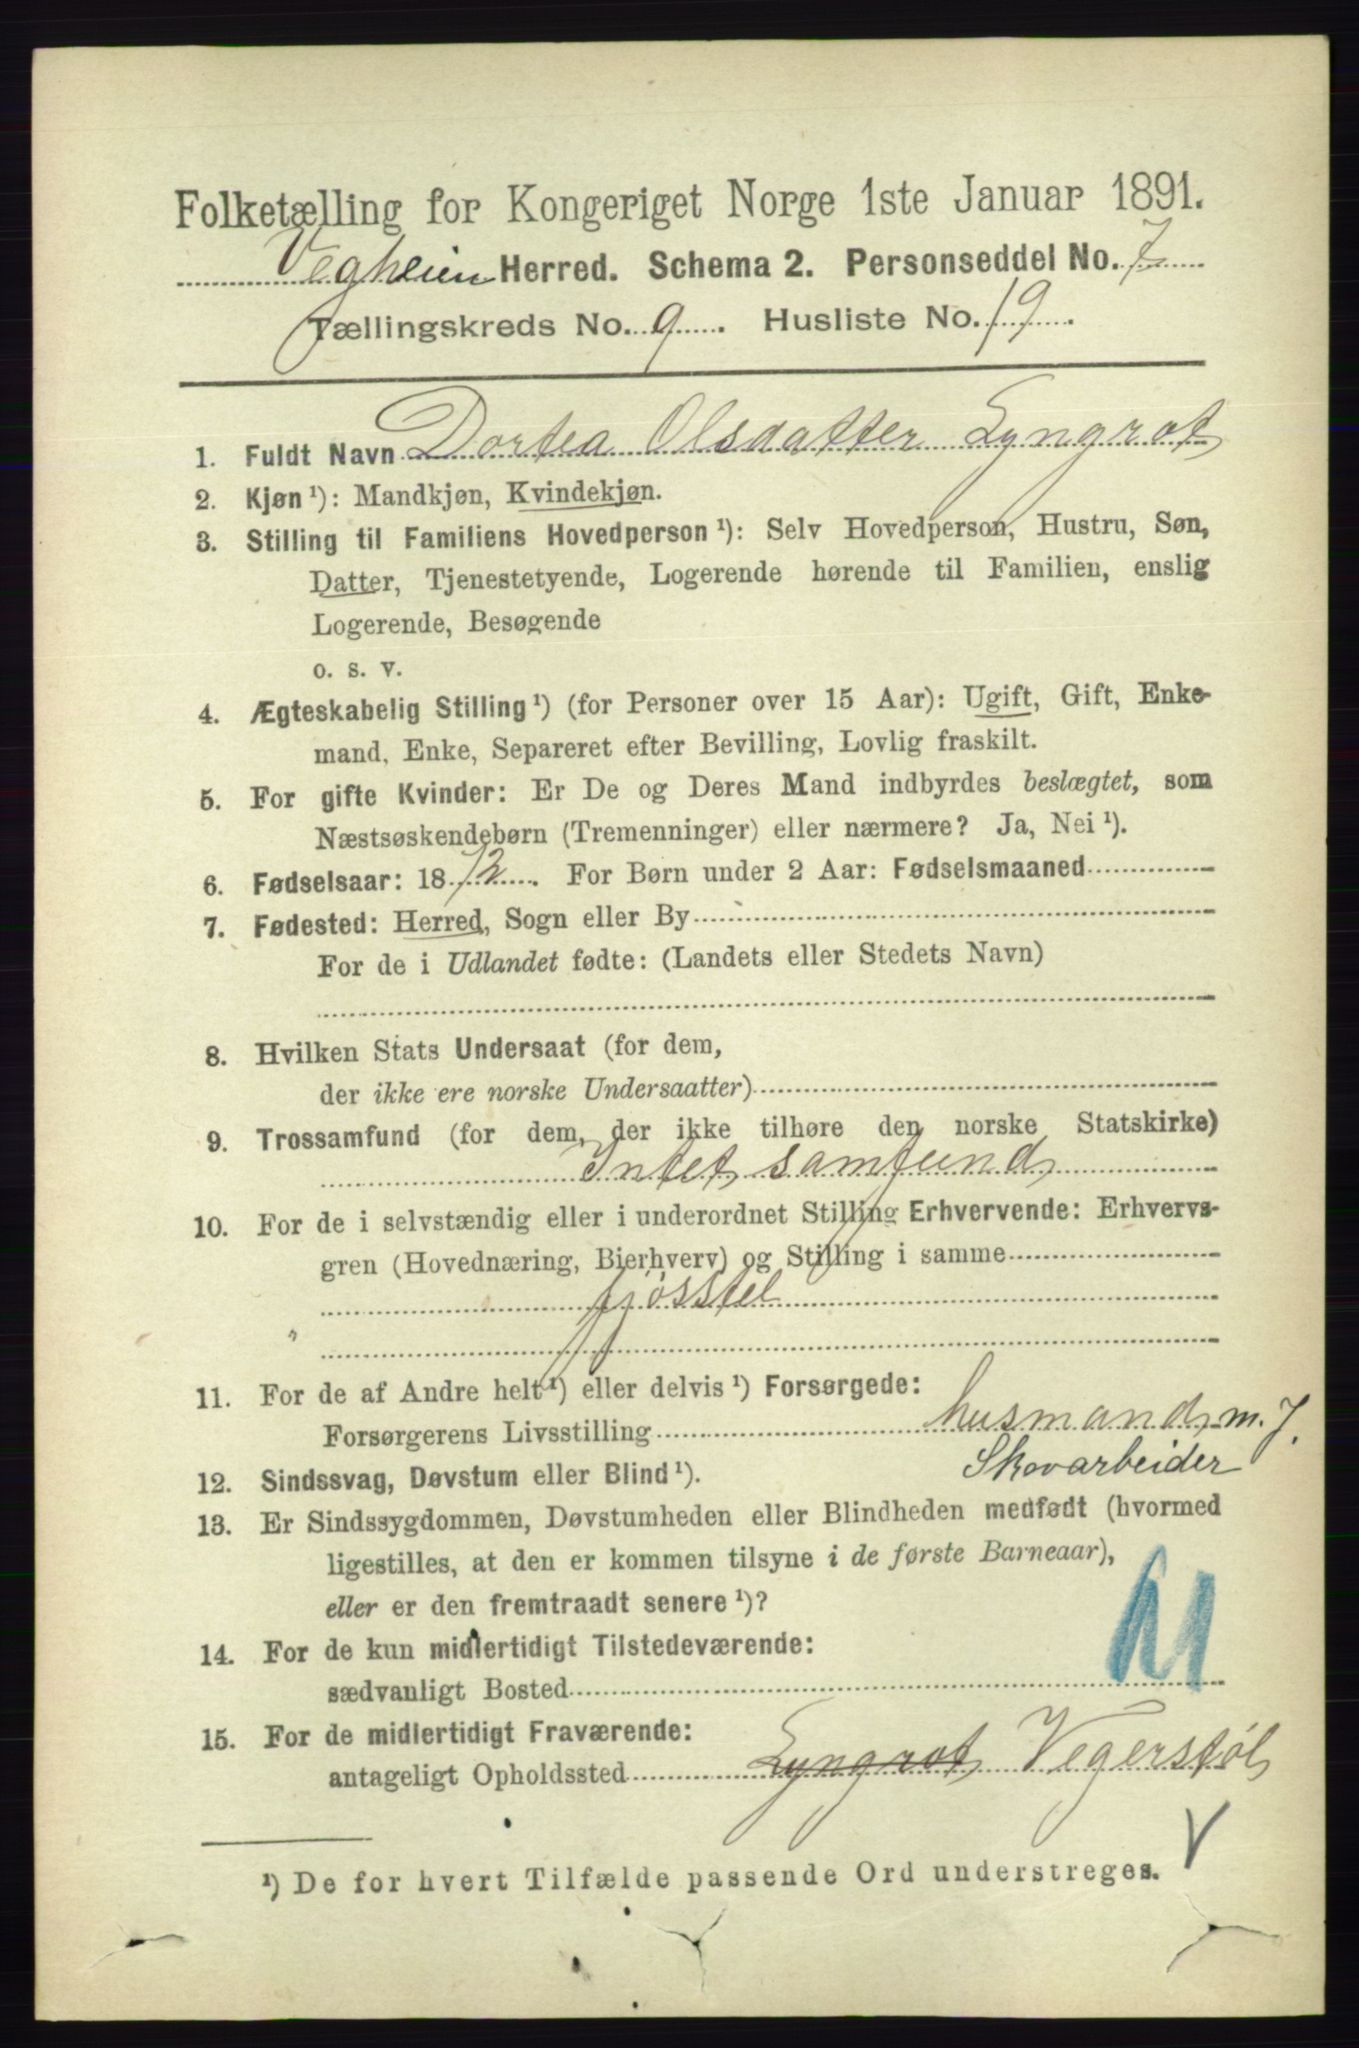 Folketælling for Kongeriget Norge 1ste Januar 1891.
Vegheien Herred. Schema 2. Personseddel No. 7
Tællingskreds No. 9. Husliste No. 19.
1. Fuldt Navn Dortea Olsdatter Lyngrot
2. Kjøn ¹): Mandkjøn, Kvindekjøn.
3. Stilling til Familiens Hovedperson ¹): Selv Hovedperson, Hustru, Søn,
Datter, Tjenestetyende, Logerende hørende til Familien, enslig
Logerende, Besøgende
o. s. v.
4. Ægteskabelig Stilling ¹) (for Personer over 15 Aar): Ugift, Gift, Enke-
mand, Enke, Separeret efter Bevilling, Lovlig fraskilt.
5. For gifte Kvinder: Er De og Deres Mand indbyrdes beslægtet, som
Næstsøskendebørn (Tremenninger) eller nærmere? Ja, Nei ¹).
6. Fødselsaar: 1872. For Børn under 2 Aar: Fødselsmaaned
7. Fødested: Herred, Sogn eller By
For de i Udlandet fødte: (Landets eller Stedets Navn)
8. Hvilken Stats Undersaat (for dem,
der ikke ere norske Undersaatter)
9. Trossamfund (for dem, der ikke tilhøre den norske Statskirke)
Intet samfund
10. For de i selvstændig eller i underordnet Stilling Erhvervende: Erhvervs-
gren (Hovednæring, Bierhverv) og Stilling i samme
fjøsstel
"
11. For de af Andre helt ¹) eller delvis ¹) Forsørgede:
Forsørgerens Livsstilling husmand m. J.
Skovarbeider
12. Sindssvag, Døvstum eller Blind ¹).
13. Er Sindssygdommen, Døvstumheden eller Blindheden medfødt (hvormed
ligestilles, at den er kommen tilsyne i de første Barneaar),
eller er den fremtraadt senere ¹)?
14. For de kun midlertidigt Tilstedeværende:
sædvanligt Bosted
15. For de midlertidigt Fraværende:
antageligt Opholdssted Lyngrot Vegerstøl
¹) De for hvert Tilfælde passende Ord understreges.